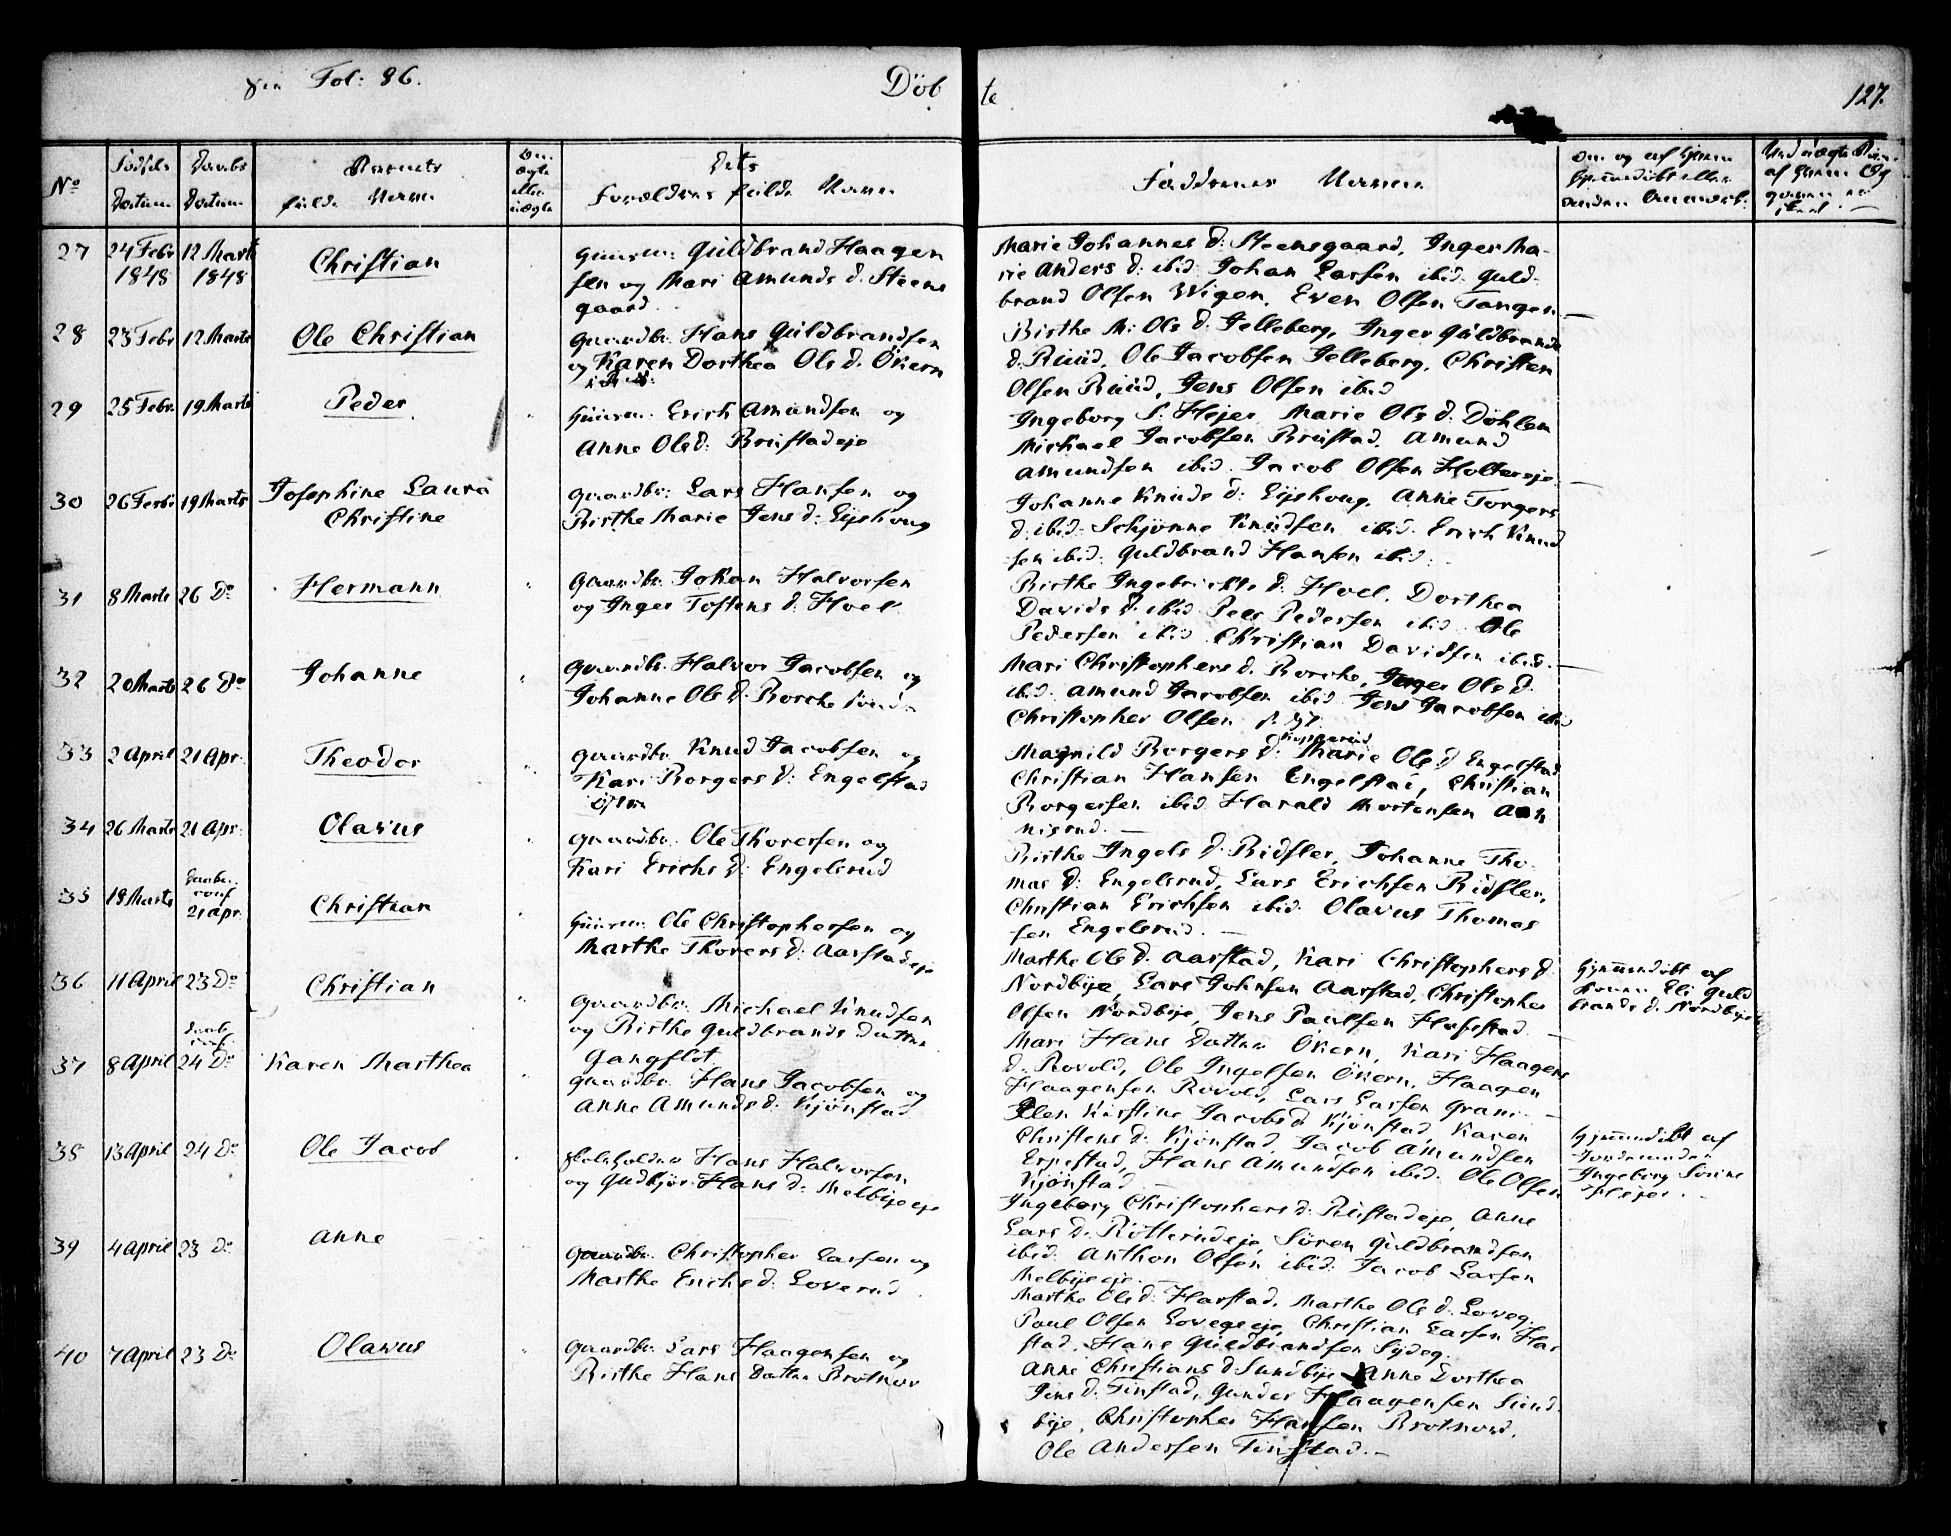 Fol: 86.
Döb te
127.
No
Fødsels Datum
Daabs Datum
Barnets fulde Navn
Om ægte eller uægte
Dets Forældres fulde Navn
Faddernes Navne
Om og af hvem hjemmedöbt eller anden Anmærk:
27
24 Febr 1848
12 Marts 1848
Christian
Guldbrand Haagen
sen og Mari Amunds d. Steens
gaard
Marie Johannes d: Steensgaard, Inger Ma-
rie Anders d: ibid. Johan Larsen ibid. Guld-
brand Olsen Wigen, Even Olsen Tangen. —
28
23 Febr
12 Marts
Ole Christian
Gaardbr. Hans Guldbrandsen
og Karen Dorthea Ols d. Økern
Birthe M: Ols d. Jelleberg, Inger Guldbrands
d. Ruud, Ole Jacobsen Jelleberg, Christen
Olsen Ruud, Jens Olsen ibid
29
25 Febr.
19 Marts
Peder
Erich Amundsen og
Anne Ols d: Brustadeje
Ingeborg S. Hejer, Marie Ols d. Döhlen
Michael Jacobsen Brustad, Amund
Amundsen ibid. Jacob Olsen Holtereje. —
30
26 Febr
19 Marts
Josephine Laura
Christine
Gaardbr: Lars Hansen og
Birthe Marie Jens d: Ejshoug
Johanne Knuds d: Ejshoug, Anne Torgers
d. ibid. Schjönne Knudsen ibid. Erich Knud
sen ibid. Guldbrand Hansen ibid.
31
8 Marts
26 Do
Hermann
Gaardbr. Johan Halvorsen
og Inger Toftens d: Hoel
Birthe Ingebrichts d: Hoel, Dorthea
Davids d: ibid. Peer Pedersen ibid. Ole
Pedersen ibid. Christian Davidsen ibid. —
32
20 Marts
26 Do
Johanne
Gaardbr. Halvor Jacobsen og
Johanne Ols d. Borche
Mari Christophers d. Borche, Inger Ols d.
ibid. Amund Jacobsen ibid. Jens Jacobsen ibid
Christopher Olsen
33
2 April
21 Apr.
Theodor
Gaardbr. Knud Jacobsen og
Kari Borgers d: Engelstad
Magnild Borgers d: Marie Ols d. Engelstad
Christian Hansen Engelstad, Christian
Borgersen ibid. Harald Mortensen Aan
nisrud. —
34
26 Marts
21 Apr.
Olavus
Gaardbr. Ole Thoresen og
Kari Erichs d: Engelsrud
Birthe Ingels d. Ridsler, Johanne Tho-
mas d: Engelsrud, Lars Erichsen Ridsler,
Christian Erichsen ibid. Olavus Thomas
sen Engelsrud. —
35
18 Marts
21 Apr.
Christian
Ole Christophersen og
Marthe Thorers d: Aarstadeje
Marthe Ols d. Aarstad, Kari Christophers d.
Nordbye, Lars Johnsen Aarstad, Christopher
Olsen Nordbye, Jens Paulsen Hafstad. —
36
11 April
23 Do
Christian
Gaardbr. Michael Knudsen
og Birthe Guldbrands Datter
Gangflot
Mari Hans Datter Økern, Kari Haagens
d. Rovold, Ole Ingelsen Økern, Haagen
Haagensen Rovold, Lars Larsen Gran. —
Hjemmedöbt af
Eli Guld
brands d. Nordbye
37
8 April
24 Do
Karen Marthea
Gaardbr. Hans Jacobsen og
Anne Amunds d. Kjönstad
Ellen Kirstine Jacobs d. Kjönstad, Karen
Christens d: Kjönstad, Jacob Amundsen
Erpestad, Hans Amundsen ibid. Ole Olsen
Kjönstad. —
38
13 April
24 Do
Ole Jacob
Hans Halvorsen
og Gudbjör Hans d: Melbyeeje
Ingeborg Christophers d. Rustadeje, Anne
Lars d. Rotterudeje, Sören Guldbrandsen
ibid. Anthon Olsen ibid. Jacob Larsen
Melbyeeje. —
Hjemmedöbt af
Jordemoder
Ingeborg Sörine
Hejer. —
39
4 April
23 Do
Anne
Gaardbr. Christopher Larsen og
Marthe Erichs d: Loverud
Marthe Ols d. Harstad, Marthe Ols d. Loveg.
Paul Olsen Lovegeje, Christian Larsen Har
stad, Hans Guldbrandsen Sydeg.
40
7 April
23 Do
Olavus
Gaardbr. Lars Haagensen og
Birthe Hans Datter Brotnov
Anne Christians d. Sundbye, Anne Dorthea
Jens d. Finstad, Gunder Haagensen Sund
bye, Christopher Hansen Brotnord,
Ole Andersen Finstad. —